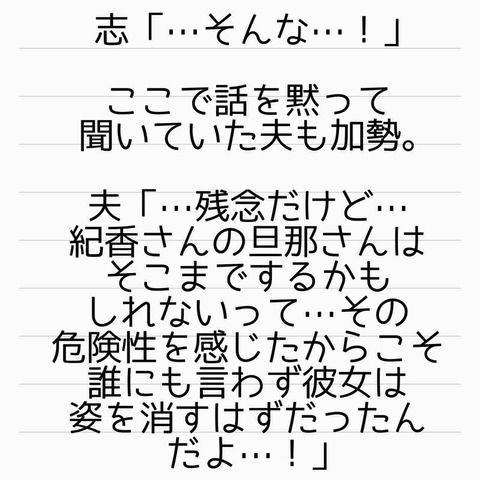 志「…そんな…！」
ここで話を黙って
聞いていた夫も加勢。
夫「…残念だけど…
紀香さんの旦那さんは
そこまでするかも
しれないって…その
危険性を感じたからこそ
誰にも言わず彼女は
姿を消すはずだったん
だよ…！」